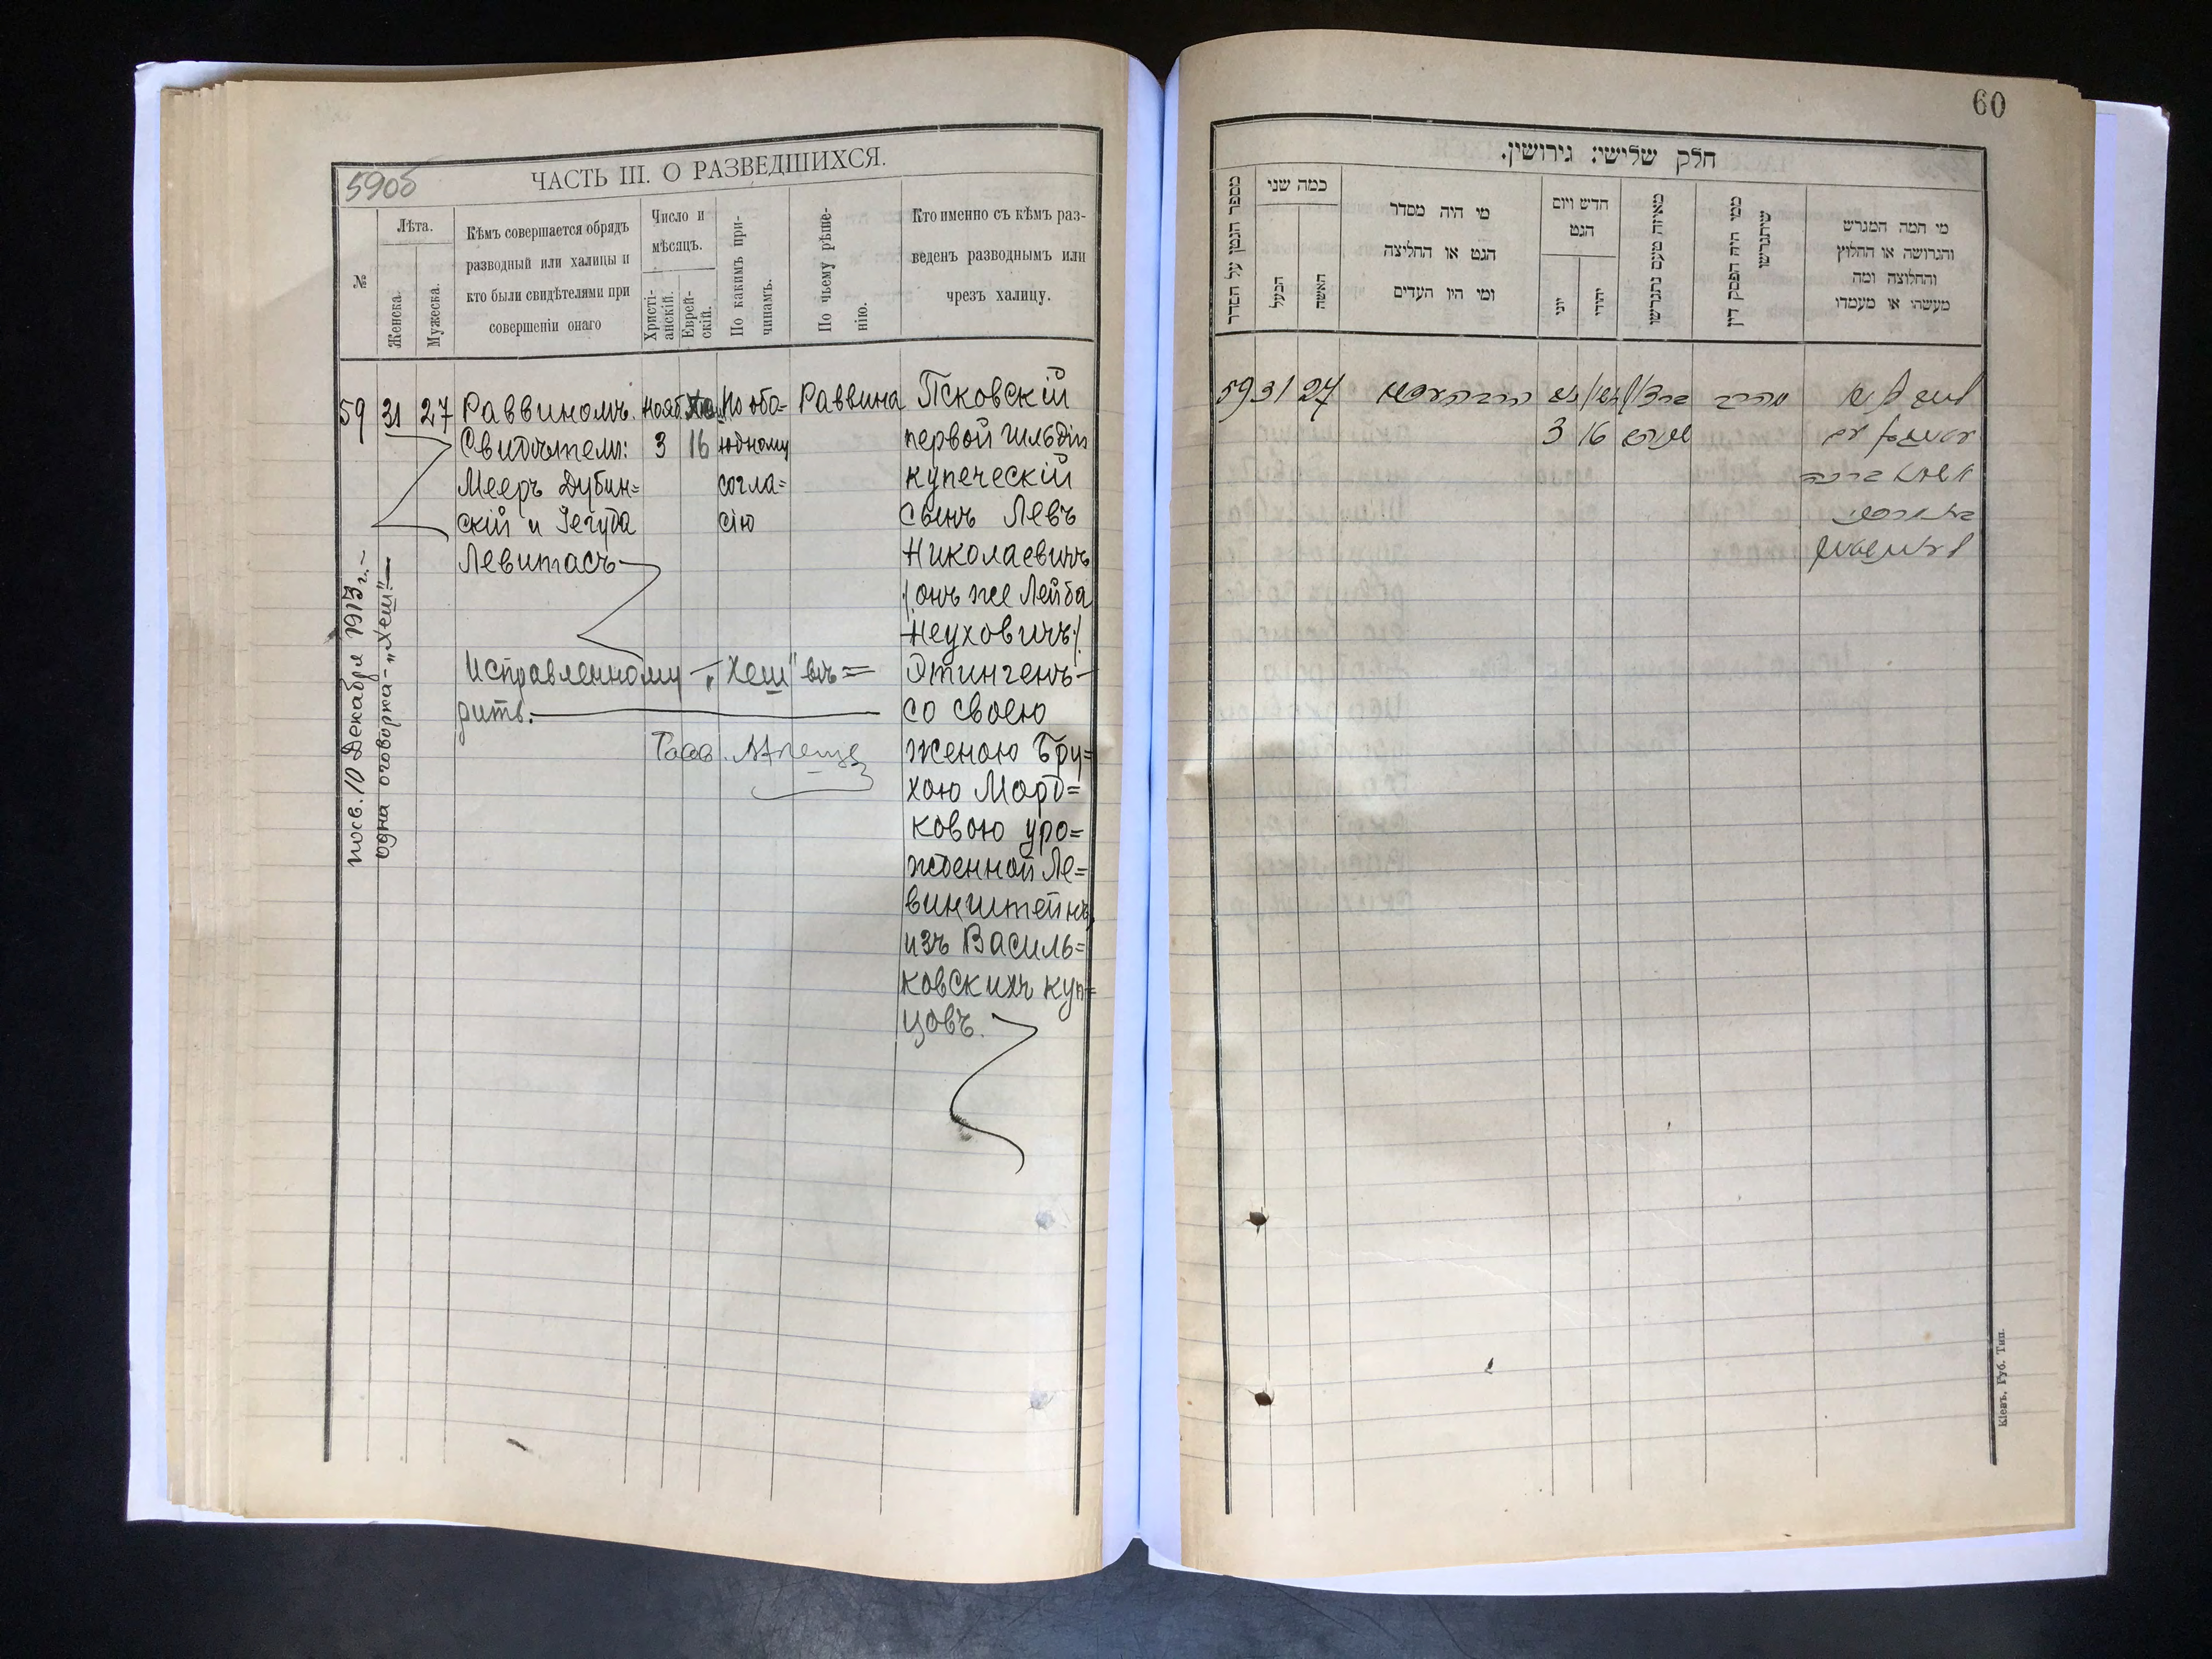 59об
ЧАСТЬ III. О РАЗВЕДШИХСЯ.
№
Лѣта.
Женска.
Мужеска.
Кѣмъ совершается обрядъ
разводный или халицы и
кто были свидѣтелями при
совершеніи онаго
Число и
мѣсяцъ.
Христі-
анскій.
Еврей-
скій.
По какимъ при-
чинамъ.
По чьему рѣше-
нію.
Кто именно съ кѣмъ раз-
веденъ разводнымъ или
чрезъ халицу.
59 31 27
Раввиномъ.
Свидѣтели:
Мееръ Дубин=
скій и Іегуда
Левитасъ
Нояб.
3
16
По обо=
юдному
согла=
сію
Раввина
Псковскій
первой гильдіи
купеческій
сынъ Левъ
Николаевичъ
(онъ же Лейба
Неуховичъ)
Этингенъ
со своею
женою Бру=
хою Морд=
ковою уро=
жденной Ле=
винштейнъ,
изъ Василь=
ковскихъ куп=
цовъ.
Исправленному - „Хеш" вѣ=
рить.
посв. 10 Декабря 1913 г. -
одна оговорка - „Хеш" -
60
חלק שלישי: גירושין.
מספר הגטין על הסדר
כמה שני
הבעל
האשה
מי היה מסדר
הגט או החליצה
ומי היו העדים
חדש ויום
הגט
יוני
יהודי
מאיזה טעם נתגרשו
ממי היה הפסק דין
שיתגרשו
מי המה המגרש
והגרושה או החלוץ
והחלוצה ומה
מעשהו או מעמדו
59 31 27
3 16
Кіевъ, Губ. Тип.